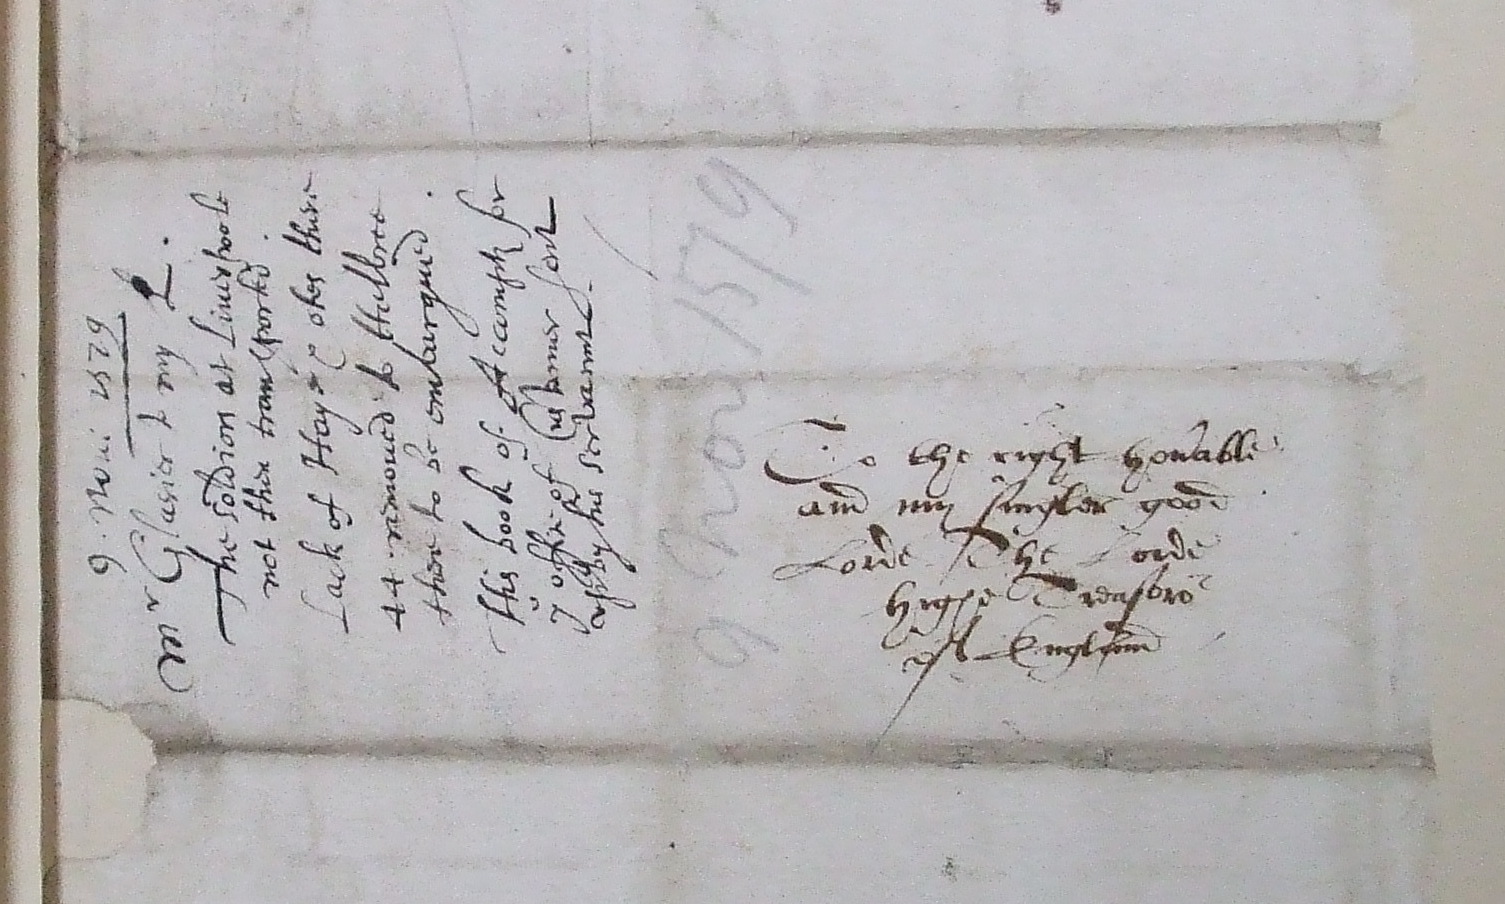 9. Novi 1579
Mr Glasier to my L.
The soldiors at Liuirpoole
not then transported.
Lack of Hay & otes there
44 remoued to Hilbree
there to be embarqued.
His book of Accompts for
ye office of Customer sent
vp by his servant.
9 Nov 1579
To the right honable
and my singler good
Lorde The Lorde
highe Treasoro
of England